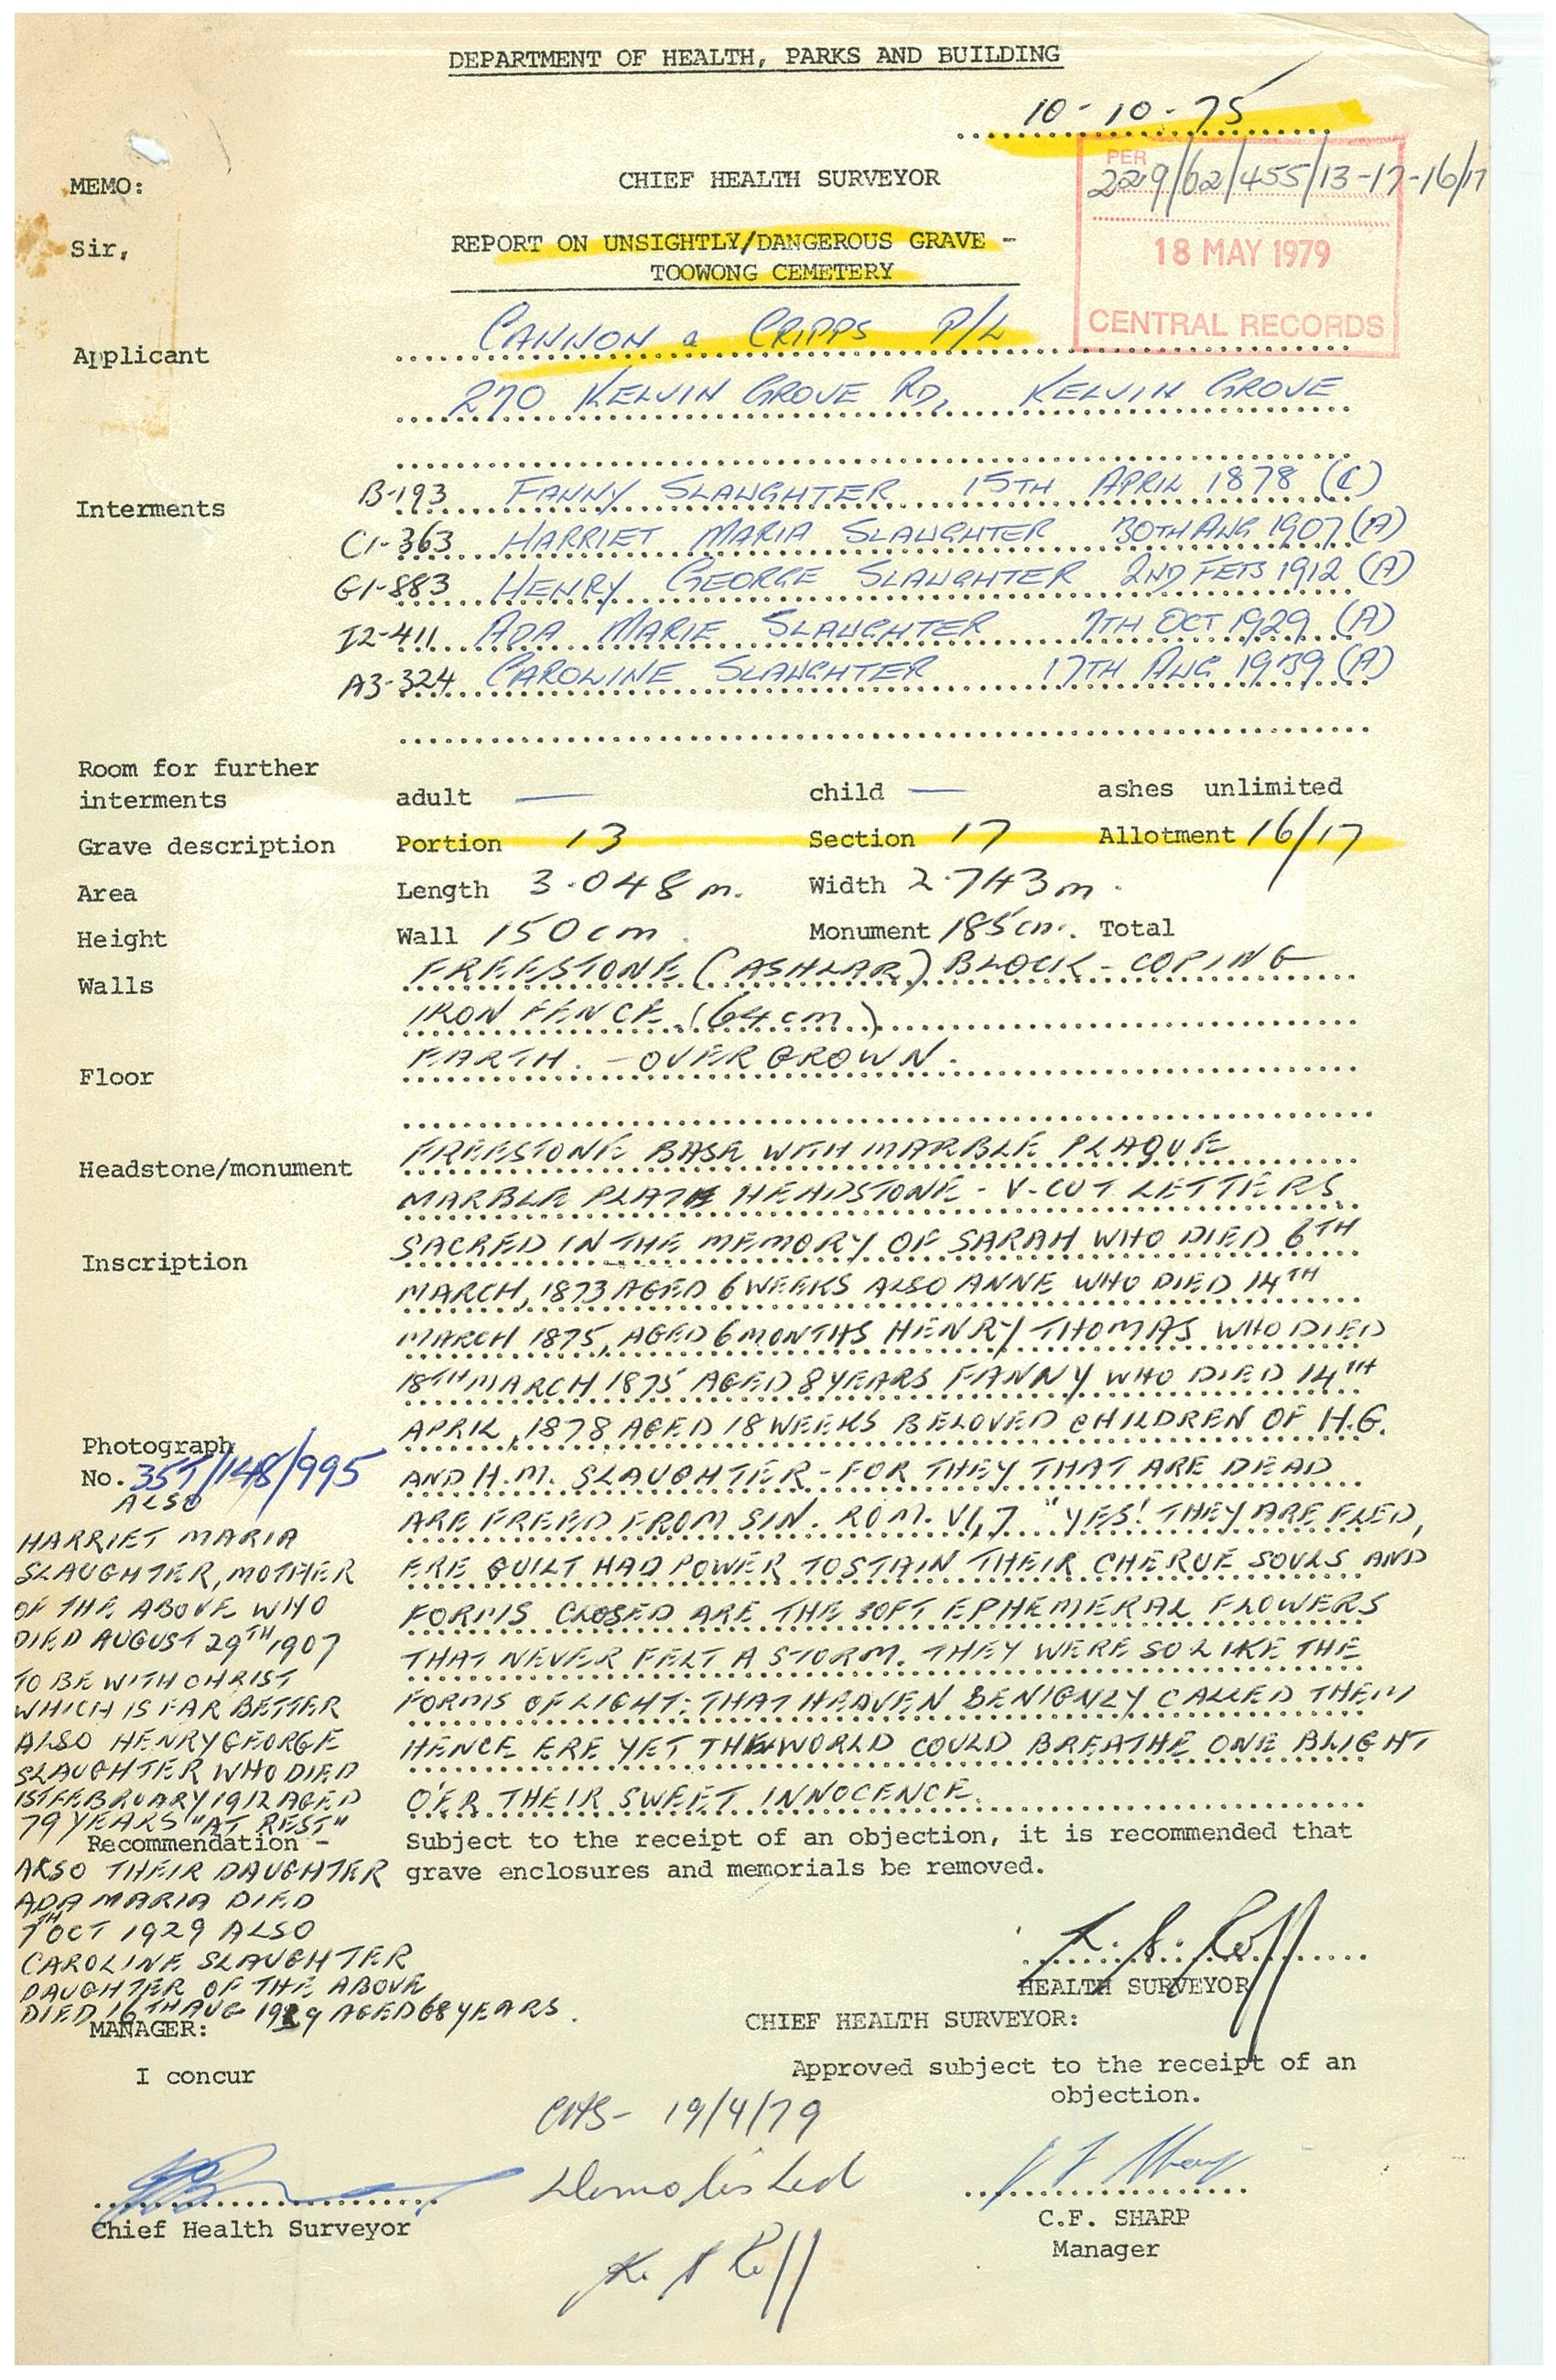 DEPARTMENT OF HEALTH, PARKS AND BUILDING
10-10-75
PER
229/62/455/13-17-16/17
18 MAY 1979
CENTRAL RECORDS
MEMO:
CHIEF HEALTH SURVEYOR
Sir,
REPORT ON UNSIGHTLY/DANGEROUS GRAVE -
TOOWONG CEMETERY
Applicant CANNON & CRIPPS P/L
270 KELVIN GROVE RD, KELVIN GROVE
Interments B-193 FANNY SLAUGHTER 15TH APRIL 1878 (C)
C1-363 HARRIET MARIA SLAUGHTER 30TH AUG 1907 (A)
G1-883 HENRY GEORGE SLAUGHTER 2ND FEB 1912 (A)
I2-411 ADA MARIE SLAUGHTER 7TH OCT 1929 (A)
A3-324 CAROLINE SLAUGHTER 17TH AUG 1939 (A)
Room for further
interments adult — child — ashes unlimited
Grave description Portion 13 Section 17 Allotment 16/17
Area Length 3.048 m. Width 2.743 m.
Height Wall 150 cm. Monument 185 cm. Total
Walls FREESTONE (ASHLAR) BLOCK - COPING
IRON FENCE (64 cm)
Floor EARTH. - OVERGROWN.
Headstone/monument FREESTONE BASE WITH MARBLE PLAQUE
MARBLE PLATE HEADSTONE - V-CUT LETTERS
Inscription SACRED IN THE MEMORY OF SARAH WHO DIED 6TH
MARCH, 1873 AGED 6 WEEKS ALSO ANNE WHO DIED 14TH
MARCH 1875, AGED 6 MONTHS HENRY THOMAS WHO DIED
18TH MARCH 1875 AGED 8 YEARS FANNY WHO DIED 14TH
APRIL, 1878 AGED 18 WEEKS BELOVED CHILDREN OF H.G.
AND H.M. SLAUGHTER - FOR THEY THAT ARE DEAD
ARE FREED FROM SIN. ROM. VI, 7 "YES! THEY ARE FLED,
ERE GUILT HAD POWER TO STAIN THEIR CHERUE SOULS AND
FORMS CLOSED ARE THE SOFT EPHEMERAL FLOWERS
THAT NEVER FELT A STORM. THEY WERE SO LIKE THE
FORMS OF LIGHT: THAT HEAVEN BENIGNLY CALLED THEM
HENCE ERE YET THE WORLD COULD BREATHE ONE BLIGHT
O'ER THEIR SWEET INNOCENCE.
Photograph
No. 357/148/995
ALSO
HARRIET MARIA
SLAUGHTER, MOTHER
OF THE ABOVE WHO
DIED AUGUST 29TH, 1907
TO BE WITH CHRIST
WHICH IS FAR BETTER
ALSO HENRY GEORGE
SLAUGHTER WHO DIED
1ST FEBRUARY 1912 AGED
79 YEARS "AT REST"
Recommendation - Subject to the receipt of an objection, it is recommended that
grave enclosures and memorials be removed.
ALSO THEIR DAUGHTER
ADA MARIA DIED
7TH OCT 1929 ALSO
CAROLINE SLAUGHTER
DAUGHTER OF THE ABOVE
DIED 16TH AUG 1939 AGED 68 YEARS.
HEALTH SURVEYOR
MANAGER:
CHIEF HEALTH SURVEYOR:
I concur
Approved subject to the receipt of an
objection.
CHS - 19/4/79
Demolished
Chief Health Surveyor
C.F. SHARP
Manager